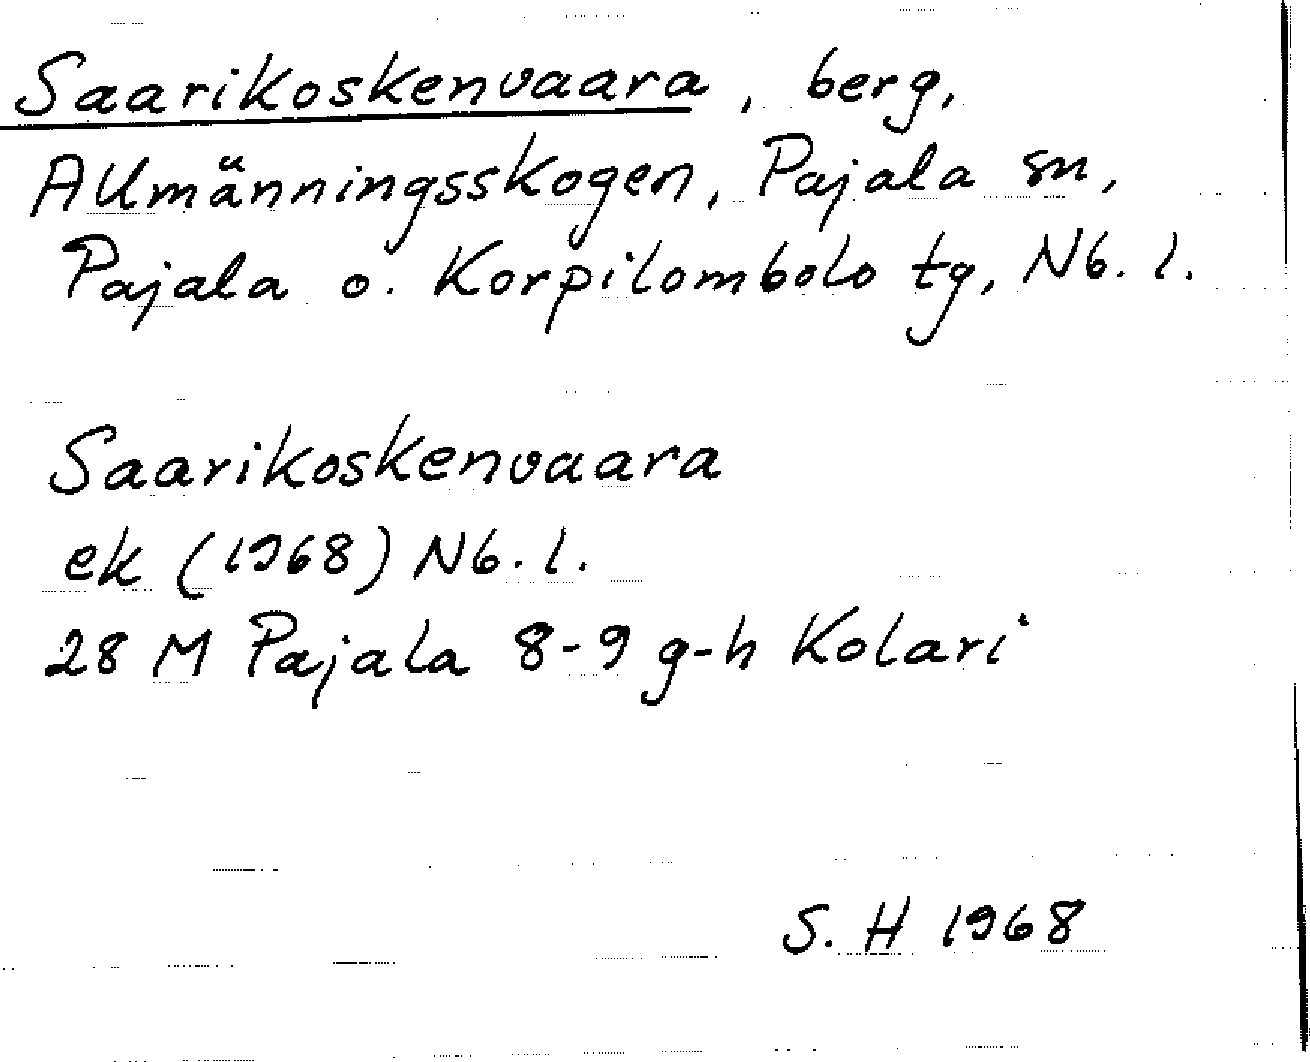 Saarikoskenvaara, berg,
Allmänningsskogen, Pajala sn,
Pajala o. Korpilombolo tg, Nb. l.
Saarikoskenvaara
ek (1968) Nb. l.
28 M Pajala 8-9 g-h Kolari
S. H 1968